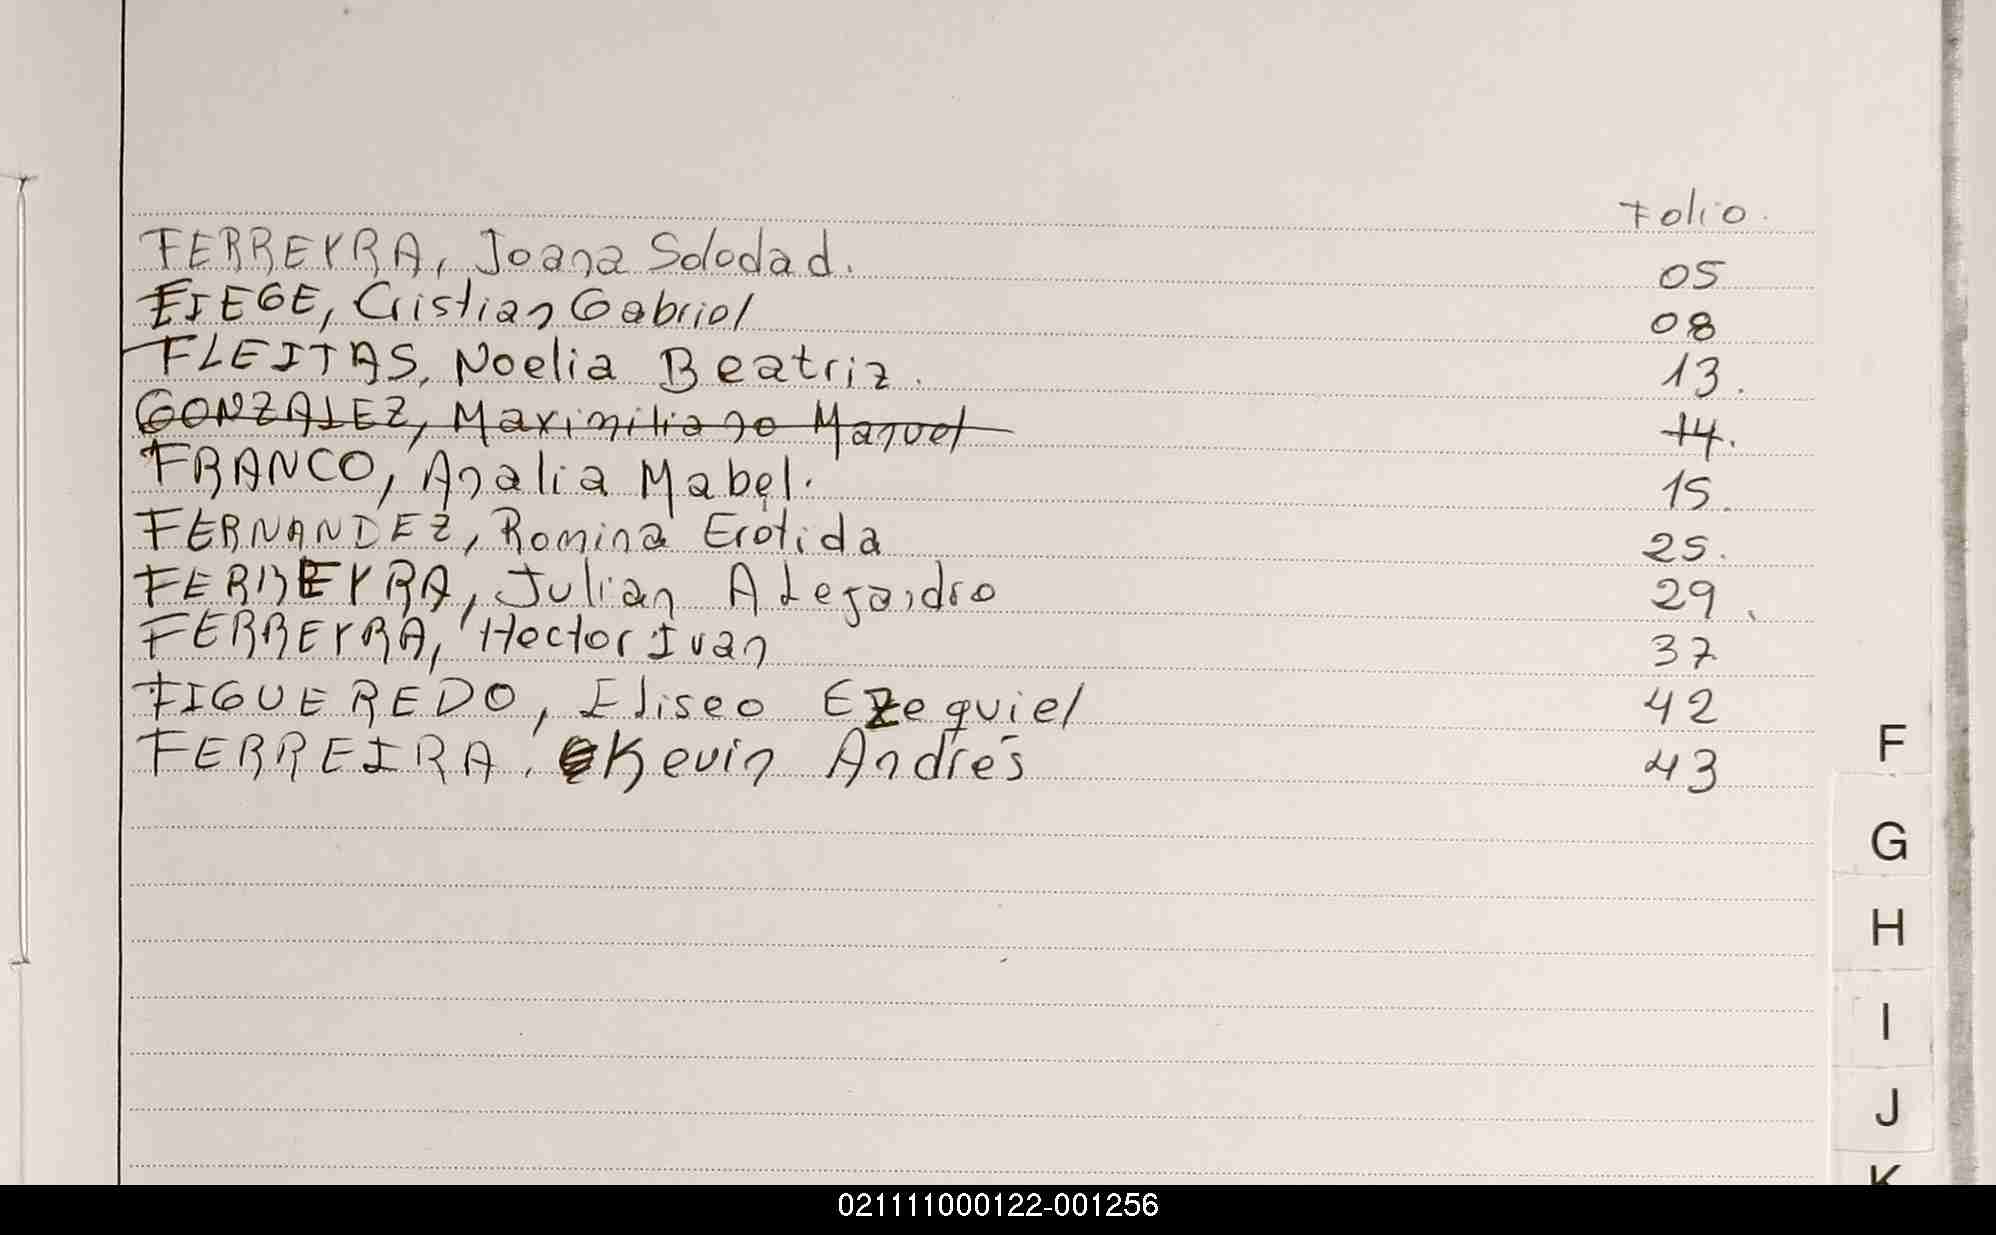 Folio.
FERREYRA, Joana Soledad. 05
FIEGE, Cristian Gabriel 08
FLEITAS, Noelia Beatriz. 13.
GONZALEZ, Maximiliano Manuel 14.
FRANCO, Analia Mabel. 15.
FERNANDEZ, Romina Erotida 25.
FERREYRA, Julian Alejandro 29.
FERREYRA, Hector Ivan 37
FIGUEREDO, Eliseo Ezequiel 42
FERREIRA, Kevin Andrés 43
F
G
H
I
J
K
021111000122-001256